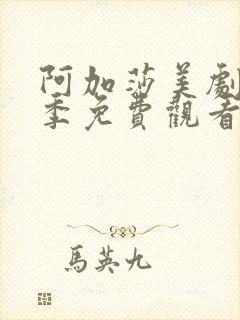 阿加莎美劇
季免費觀看
馬英九